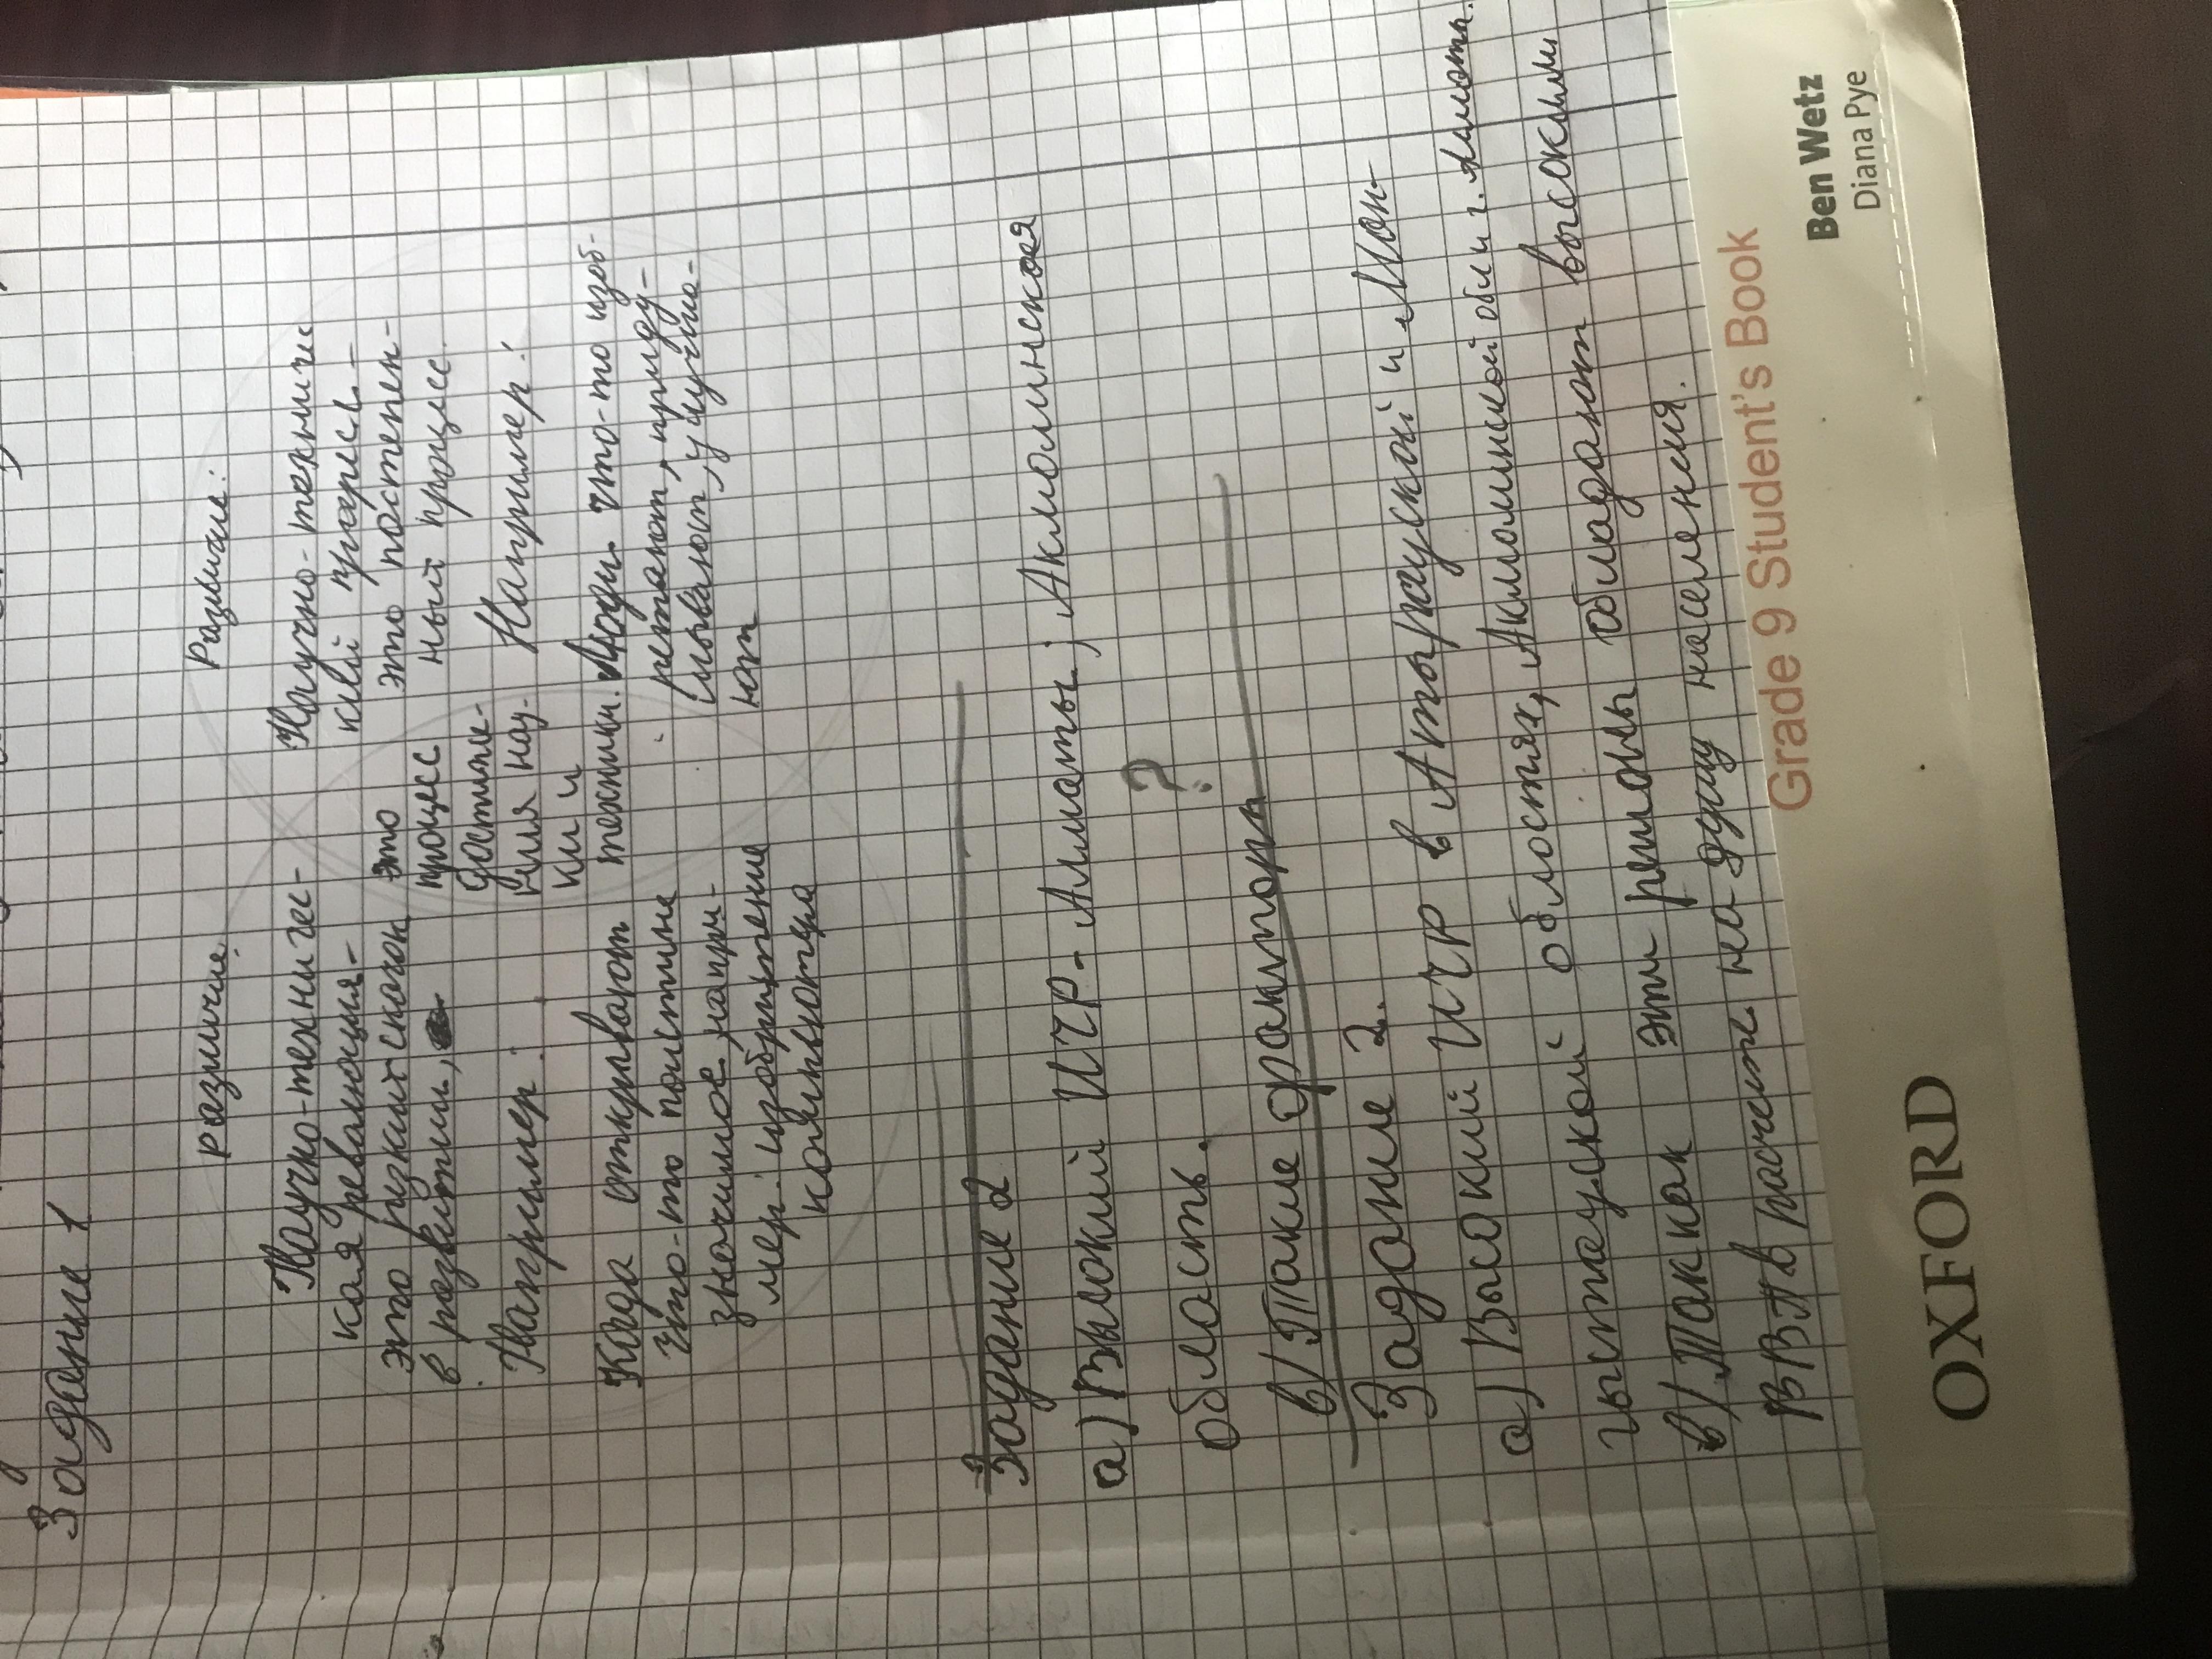 Задание 1
различие: Различие:
Научно-техничес-
кая революция-
это резкий скачок
в развитии,
Например:
Когда открывают
что-то поистине
значимое, напри-
мер: изобритение
компьютера
это
процесс
достиже-
ния нау-
ки и
техники.
Научно-техничес
кий прогресс-
это постепен-
ный процесс.
Например:
Люди что-то изоб-
ретают, приду-
мывают, улучша-
ют
Задание 2
а) Высокий ИЧР- Алматы; Акмолинская
область. ?
в) Такие факторы
Задание 2.
а) Высокий ИЧР в Атырауской и Ман-
гыстауской областях, Акмолинской обл и г. Алматы.
в) Так как эти регионы обладают высоким
ВВП в расчете на душу населения.
Grade 9 Student's Book
Ben Wetz
Diana Pye
OXFORD